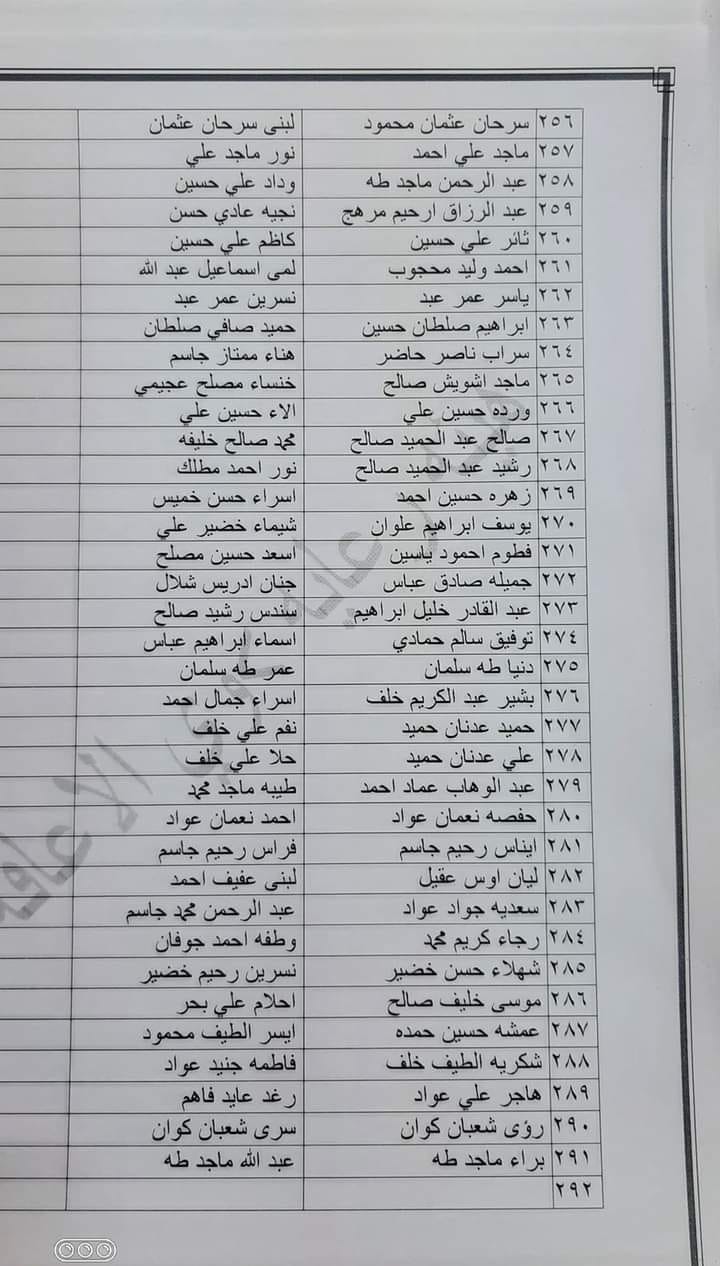 ٢٥٦ سرحان عثمان محمود لبنى سرحان عثمان
٢٥٧ ماجد علي احمد نور ماجد علي
٢٥٨ عبد الرحمن ماجد طه وداد علي حسين
٢٥٩ عبد الرزاق ارحيم مرهج نجيه عادي حسن
٢٦٠ ثائر علي حسين كاظم علي حسين
٢٦١ احمد وليد محجوب لمى اسماعيل عبد الله
٢٦٢ ياسر عمر عبد نسرين عمر عبد
٢٦٣ ابراهيم صلطان حسين حميد صافي صلطان
٢٦٤ سراب ناصر حاضر هناء ممتاز جاسم
٢٦٥ ماجد اشويش صالح خنساء مصلح عجيمي
٢٦٦ ورده حسين علي الاء حسين علي
٢٦٧ صالح عبد الحميد صالح محمد صالح خليفه
٢٦٨ رشيد عبد الحميد صالح نور احمد مطلك
٢٦٩ زهره حسين احمد اسراء حسن خميس
٢٧٠ يوسف ابراهيم علوان شيماء خضير علي
٢٧١ فطوم احمود ياسين اسعد حسين مصلح
٢٧٢ جميله صادق عباس جنان ادريس شلال
٢٧٣ عبد القادر خليل ابراهيم سندس رشيد صالح
٢٧٤ توفيق سالم حمادي اسماء ابراهيم عباس
٢٧٥ دنيا طه سلمان عمر طه سلمان
٢٧٦ بشير عبد الكريم خلف اسراء جمال احمد
٢٧٧ حميد عدنان حميد نغم علي خلف
٢٧٨ علي عدنان حميد حلا علي خلف
٢٧٩ عبد الوهاب عماد احمد طيبه ماجد محمد
٢٨٠ حفصه نعمان عواد احمد نعمان عواد
٢٨١ ايناس رحيم جاسم فراس رحيم جاسم
٢٨٢ ليان اوس عقيل لبنى عفيف احمد
٢٨٣ سعديه جواد عواد عبد الرحمن محمد جاسم
٢٨٤ رجاء كريم محمد وطفه احمد جوفان
٢٨٥ شهلاء حسن خضير نسرين رحيم خضير
٢٨٦ موسى خليف صالح احلام علي بحر
٢٨٧ عمشه حسين حمده ايسر الطيف محمود
٢٨٨ شكريه الطيف خلف فاطمه جنيد عواد
٢٨٩ هاجر علي عواد رغد عايد فاهم
٢٩٠ رؤى شعبان كوان سرى شعبان كوان
٢٩١ براء ماجد طه عبد الله ماجد طه
٢٩٢